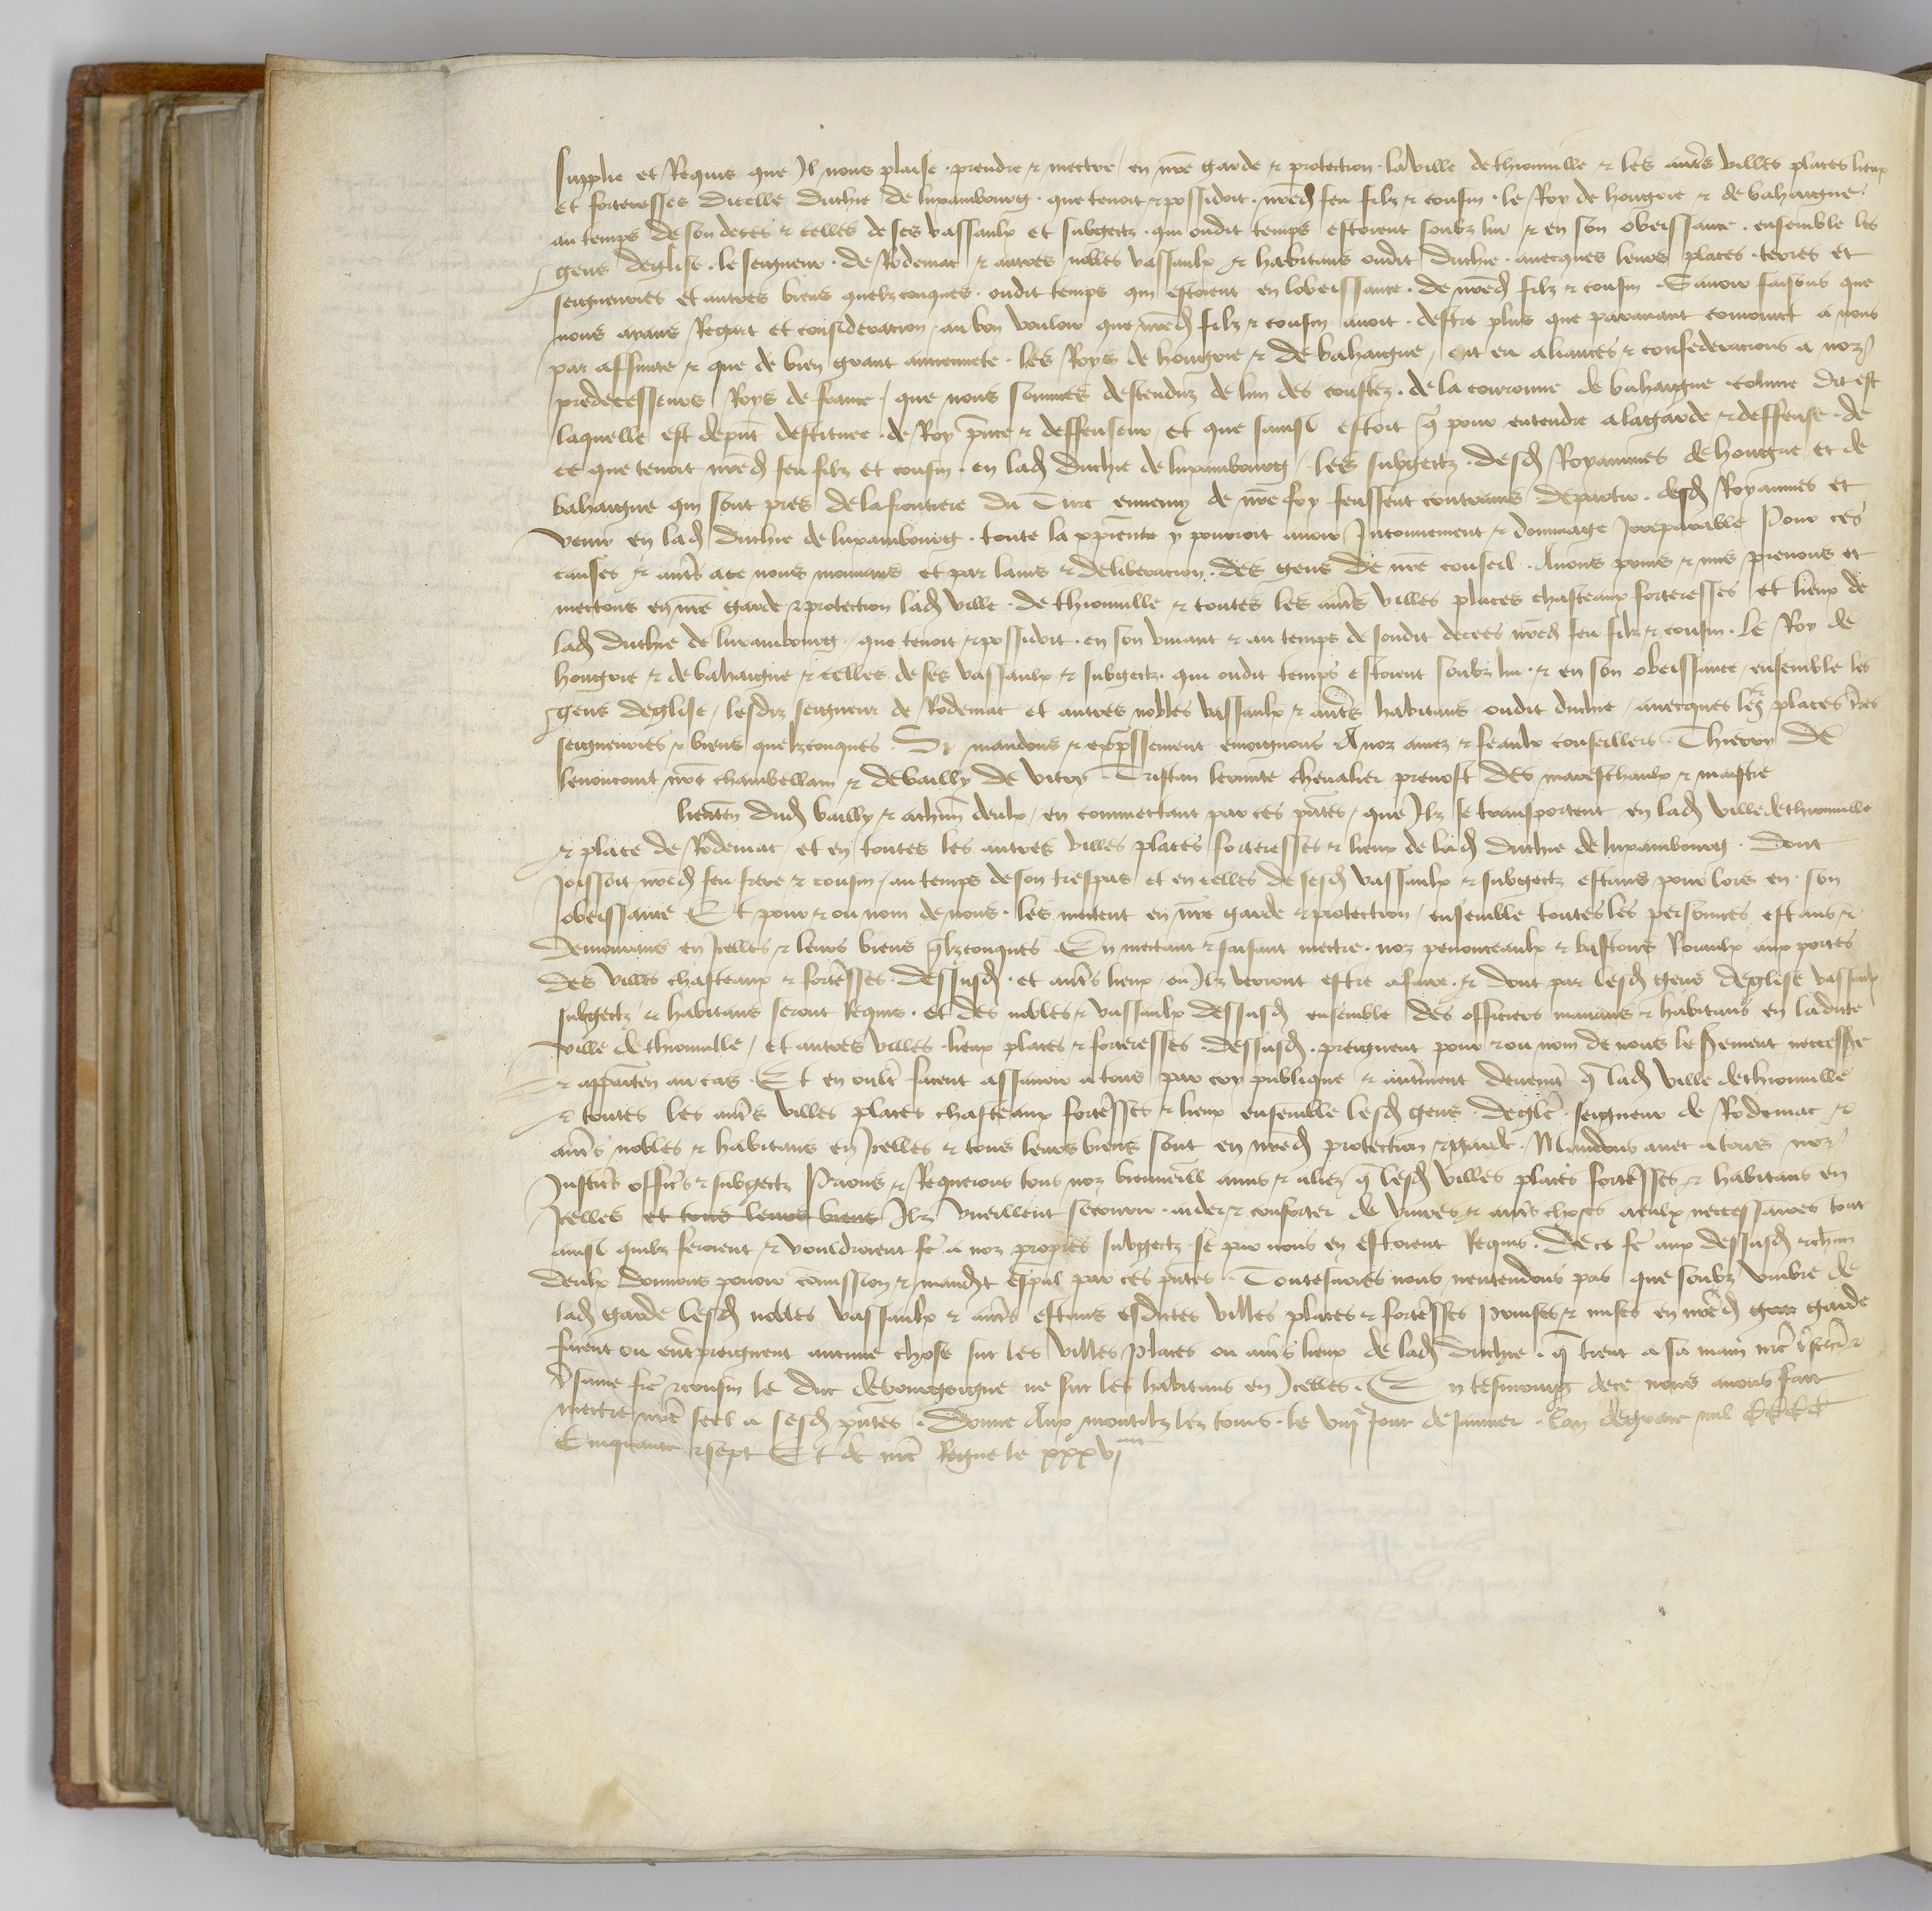 supplie et Requis que Jl nous plaise . prendre & mectre / en nre garde & protection . la ville de thionuille & les autres villes places lieux
et forteresses dicelle duchie de luxambourg . que tenoit & possidoit . nred feu filz & cousin . le Roy de hongrie & de bahaigne
au temps de son deces & celles de ses vassaulx et subgectz . qui oudit temps estoient soubz lui & en son obeissance . ensemble les
gens deglise . le seigneur . de Rodemac & autres nobles vassaulx & habitans oudit duchie . auecques leurs places . terres et
seigneuries et autres biens quelzconques . oudit temps qui estoient en lobeissance . de nred filz & cousin . Sauoir faisons que
nous ayans Regart et consideracion / au bon vouloir que nred filz & cousin auoit . destre plus que parauant conioinct a nous
par affinite & que de bien grant anciennete . les Roys de hongrie & de bahaigne / ont eu aliances & confederacions a noz
predecesseurs Roys de france / que nous sommes descenduz de lun des coustez . de la couronne de bahaigne comme dit est
laquelle est depnt destituee . de Roy pnce & deffenseur / Et que sainsi estoit q pour entendre a la garde & deffense . de
ce que tenoit nred feu filz et cousin . en lad duchie de luxambourg / les subgectz . desd Royaumes de hongrie et de
bahaigne qui sont pres de la frontiere du Turc ennemy de nre foy feussent contrains departir . desd Royaumes et
venir en lad duchie de luxambourg . toute la xpiente y pourroit auoir Jnconuenient & dommage Jrreparable Pour ces
causes & autrs ace nous mouuans et par lauis & deliberacion . des gens de nre conseil . Auons prins & mis prenons et
mectons en nre garde & protection lad ville . de thionuille & toutes les autrs villes places chasteaux forteresses et lieux de
lad duchie de luxambourg . que tenoit & possidoit . en son viuant & au temps de sondit deces nred feu filz & cousin . le Roy de
hongrie & de bahaigne & celles de ses vassaulx & subgectz . qui oudit temps estoient soubz lui . & en son obeissance / ensemble les
gens deglise / lesdiz seigneur de Rodemac et autres nobles vassaulx & autrs habitans oudit duchie / auecques leurs places tres
seigneuries & biens quelzconques . Si mandons & expssement enioignons A noz amez & feaulx conseillers . Thierry de
lenoncourt nre chambellam & debailly de vitry . Tristan lermite cheualier preuost des mareschaulx & maistre
lieuten dud bailly & achun deulx / en commectant par ces pntes / que Jlz se transportent en lad ville de thionuille
& place de Rodemac / et en toutes les autres villes places forteresses & lieux de lad duchie de luxambourg . dont
Joissoit nred feu frere & cousin / au temps de son trespas et en celles de sesd vassaulx & subgectz estans pour lors en son
obeissance Et pour & ou nom de nous . les mectent en nre garde & protection / ensemble toutes les personnes estans &
demourans en Jcelles & leurs biens qlzconques . En mectant & faisant mectre . noz penonceaulx & bastons Roiaulx aux portes
des villes chasteaux & fortesses . dessusd . et autrs lieux / ou Jlz verront estre a faire . & dont par lesd gens deglise vassaulx
subgectz & habitans seront Requis . et des nobles & vassaulx dessusd ensemble des officiers manans & habitans en ladicte
ville de thionuille / et autres villes . lieux places & forteresses . dessusd . preignent pour & ou nom de nous le serement neccessre
& apparten au cas . Et en oultr facent assauoir a tous par cry publique & autrment deuemt q lad ville de thionuille
& toutes les autrs villes places chasteaux fortesses & lieux ensemble lesd gens . deglise . seigneur de Rodemac &
autrs nobles & habitans en Jcelles & tous leurs biens sont en nred protection & garde . Mandons auec a tous noz
Justicrs officrs & subgectz Prions & Requerons tous noz bienueill amis & aliez q lesd villes places fortesses & habitans en
Jcelles et tous leurs biens Jlz vueillent secourir . aider & conforter de viures & autrs choses a eulx neccessaires tout
ainsi quilz feroient & vouldroient fe a noz propres subgectz se par nous en estoient Requis . De ce fe aux dessusd & chun
deulx donnons pouoir comission & mandt espal par ces pntes . Toutesuoies nous nentendons pas que soubz vmbre de
lad garde lesd nobles vassaulx & autrs estans esdictes villes places & fortesses prinses & mises en nred garde
facent ou entrepreignent aucune chose sur les villes places ou autrs lieux de lad duchie . q tient a sa main nre treschr &
tresame fre & cousin le duc de bourgongne ne sur les habitans en Jcelles . En tesmoing de ce nous auons fait
mectre nre seel a sesd pntes . Donne Aux montilz lez tours . le viije Jour de Januier . lan de grace mil CCCC
Cinquante & sept Et de nre Regne le xxxvjme